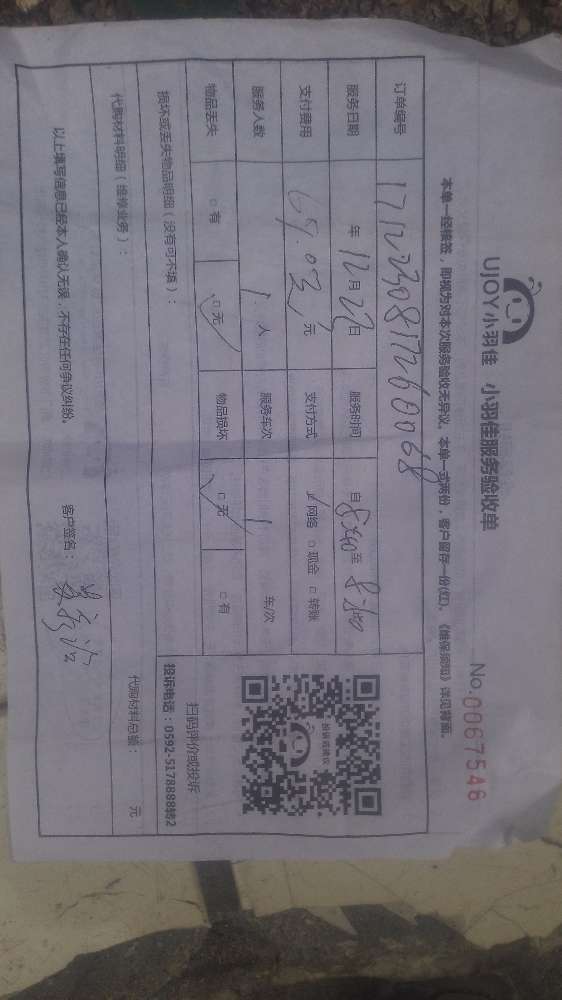 UJOY小羽佳 小羽佳服务验收单
No.0067546
本单一经接签，即视为对本次服务验收无异议，本单一式两份，客户留存一份(红)，《维保须知》详见背面。
订单编号 1712230817260068
服务日期 年 12月23日 服务时间 自 至
支付费用 元 支付方式 网络 □ 现金 □ 转账
服务人数 1 人 服务车次 1 车/次
物品丢失 □ 有 □ 无 物品损坏 □ 无 □ 有
扫码评价或投诉
投诉电话：0592-5178888转2
损坏或丢失物品明细（没有可不填）：
代购材料明细（维修业务）： 代购材料总额： 元
以上填写信息已经本人确认无误，不存在任何争议纠纷。 客户签名：